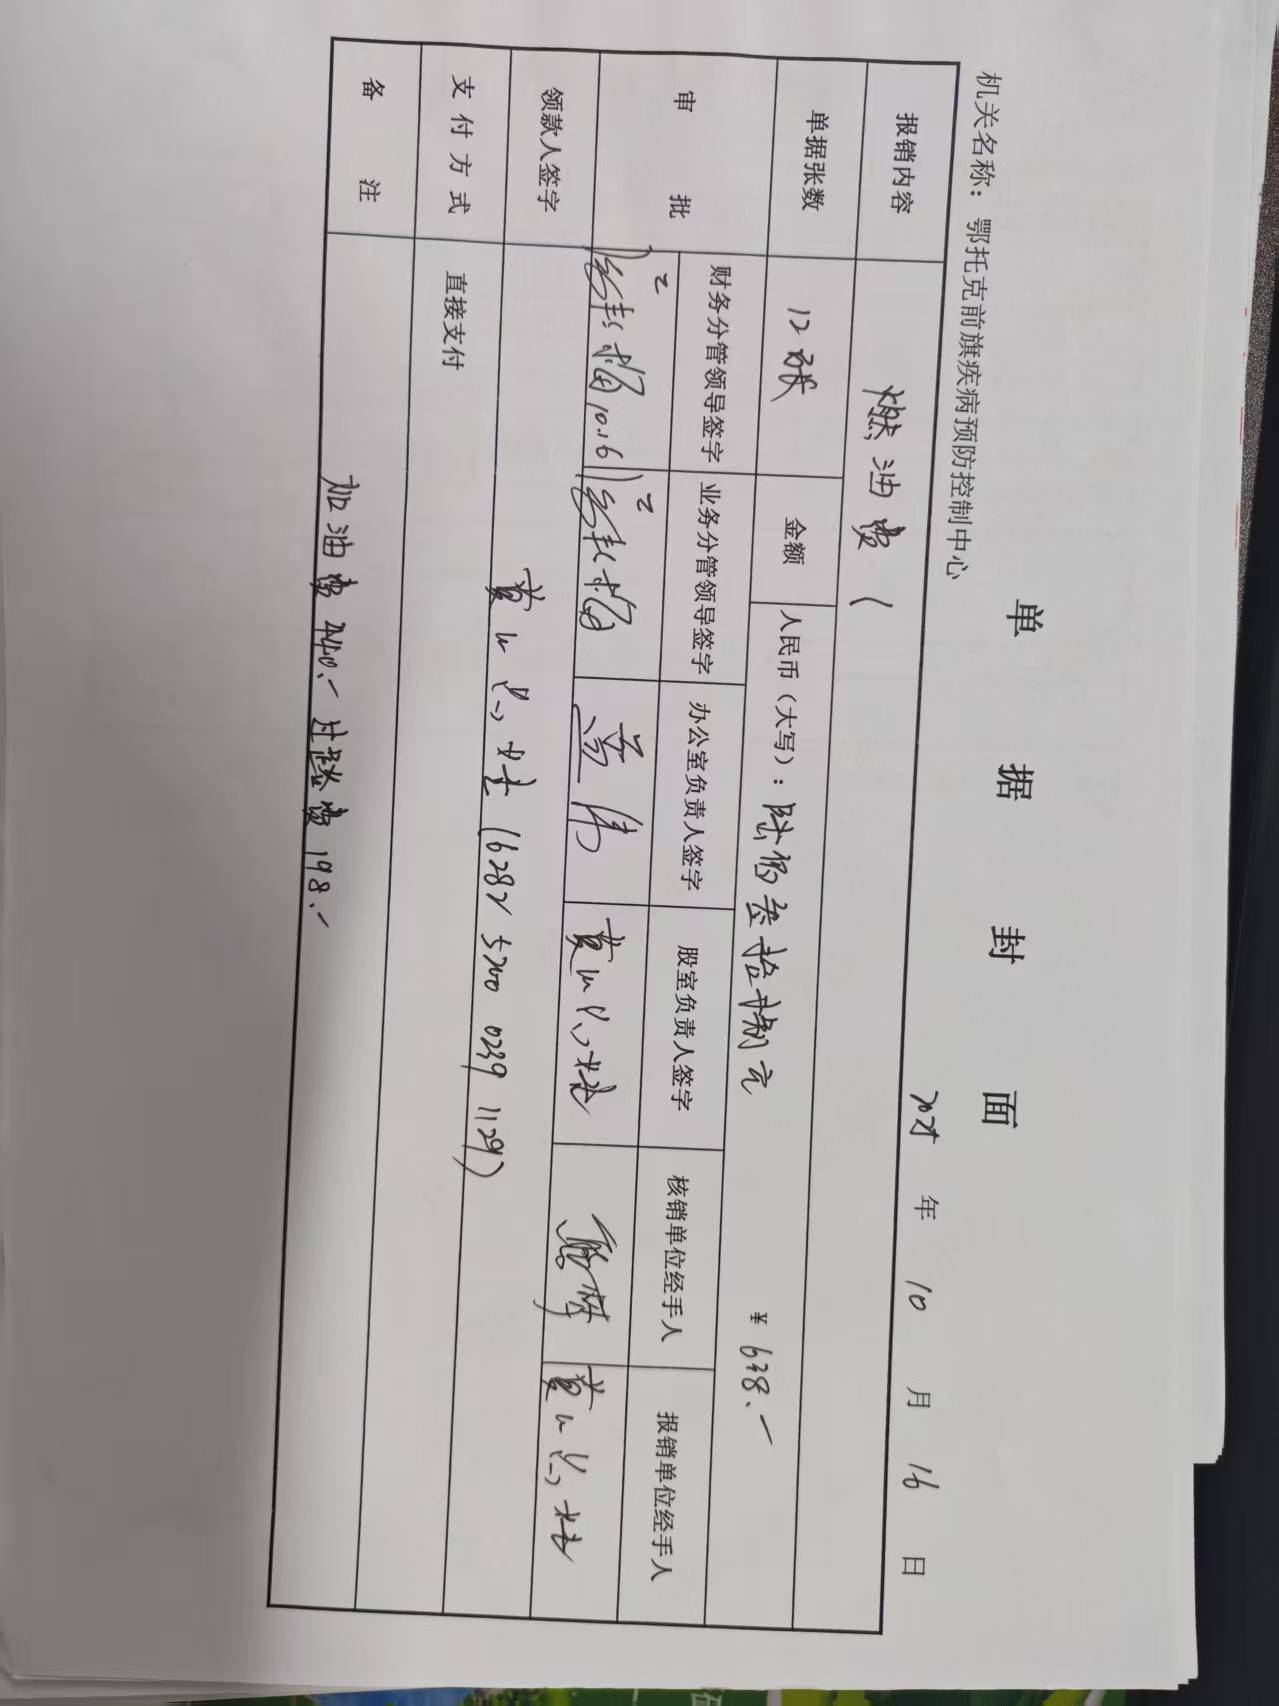 单据封面
机关名称：鄂托克前旗疾病预防控制中心
年 10 月 16 日
报销内容 燃油费
单据张数 12张 金额 人民币（大写）：陆佰叁拾捌元 ¥ 638.-
审批 财务分管领导签字 业务分管领导签字 办公室负责人签字 股室负责人签字 核销单位经手人 报销单位经手人
10.16
领款人签字 (6282 5700 0239 1129)
支付方式 直接支付
备注 加油费 440.- 过路费 198.-